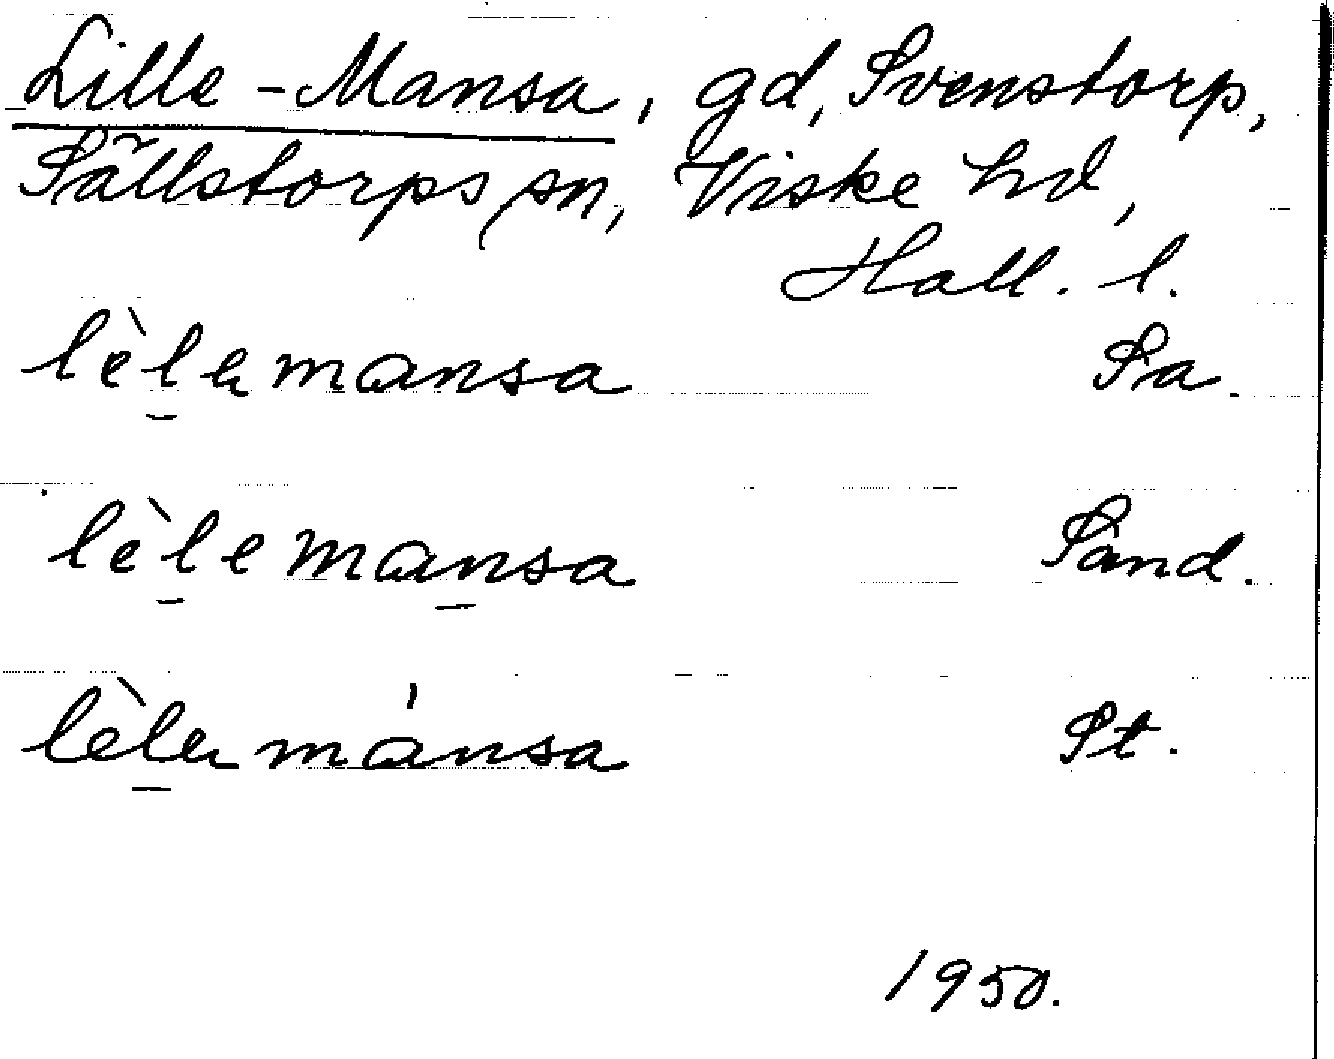 Lille-Mansa, gd, Svenstorp,
Sällstorps sn, Viske hd,
Hall. l.
lèlamansa Sa.
lèlemansa Sand.
lèlamánsa St.
1950.